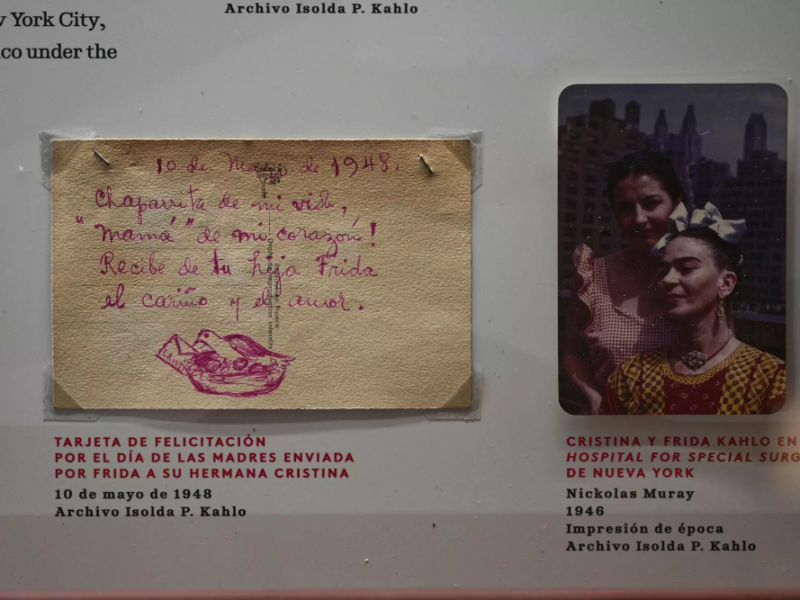 Archivo Isolda P. Kahlo
York City,
under the
10 de Mayo de 1948.
Chaparrita de mi vida,
"mamá" de mi corazón!
Recibe de tu hija Frida
el cariño y el amor.
TARJETA DE FELICITACIÓN
POR EL DÍA DE LAS MADRES ENVIADA
POR FRIDA A SU HERMANA CRISTINA
10 de mayo de 1948
Archivo Isolda P. Kahlo
CRISTINA Y FRIDA KAHLO EN
HOSPITAL FOR SPECIAL SURG
DE NUEVA YORK
Nickolas Muray
1946
Impresión de época
Archivo Isolda P. Kahlo